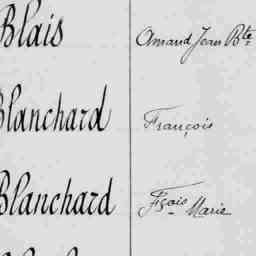 Blais Amand Jean Bte
Blanchard François
Blanchard Fçois Marie